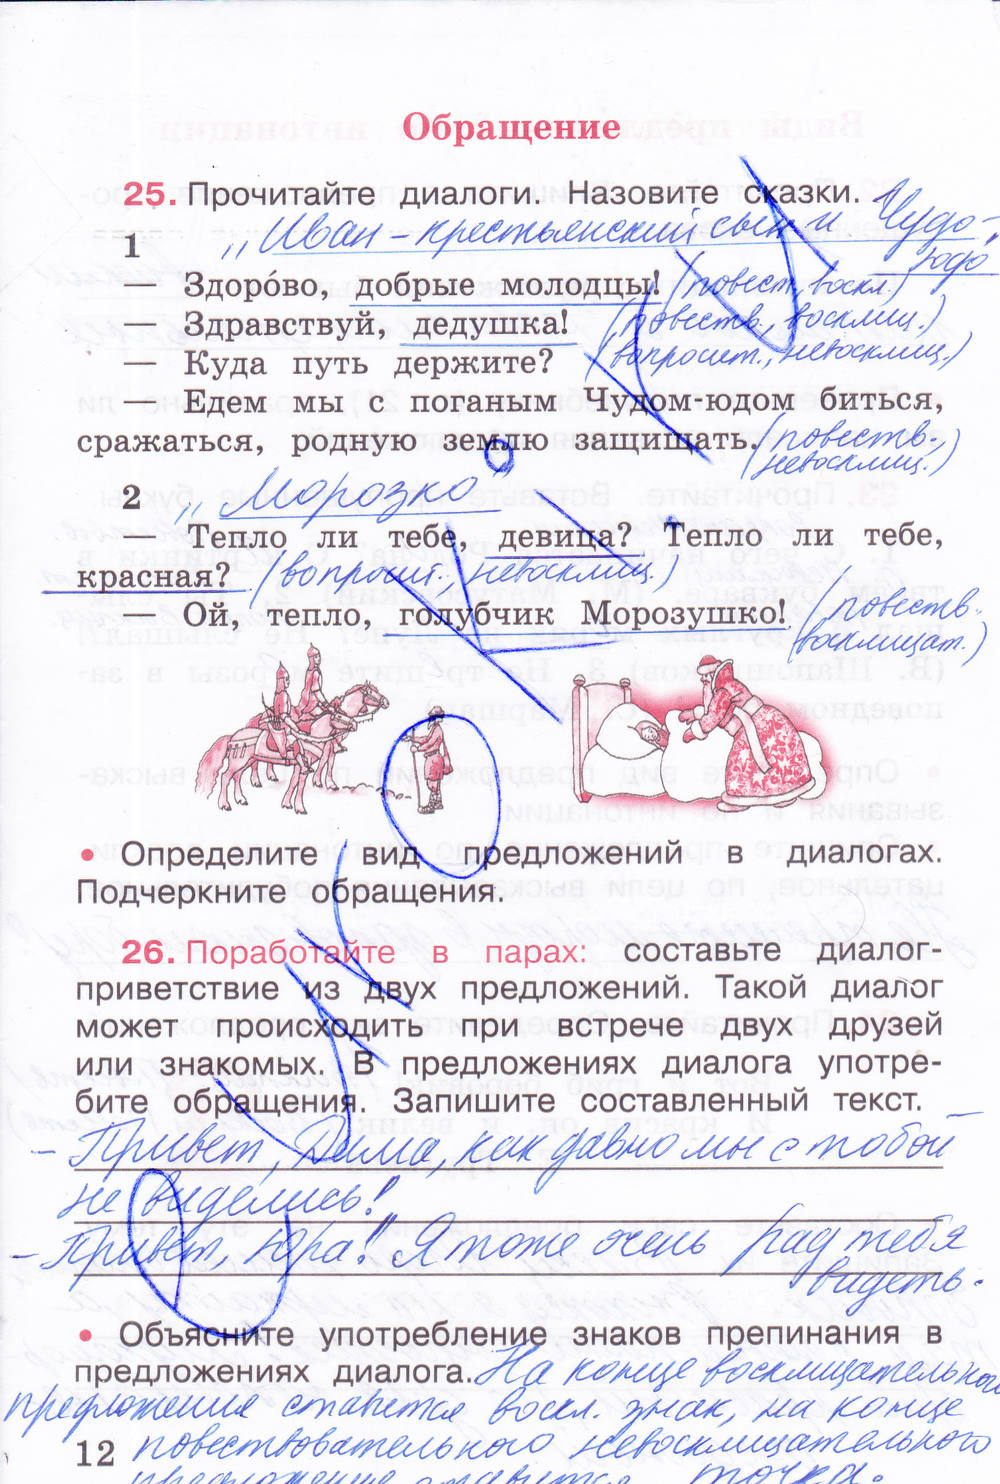 Обращение
25. Прочитайте диалоги. Назовите сказки.
„Иван-крестьянский сын и Чудо-
юдо"
1
— Здоро́во, добрые молодцы! (повест., воскл.)
— Здравствуй, дедушка! (повеств. восклиц.)
— Куда путь держите? (вопросит., невосклиц.)
— Едем мы с поганым Чудом-юдом биться,
сражаться, родную землю защищать. (повеств.,
невосклиц.)
2 „Морозко"
— Тепло ли тебе, девица? Тепло ли тебе,
красная? (вопросит., невосклиц.)
— Ой, тепло, голубчик Морозушко! (повеств.
восклицат.)
• Определите вид предложений в диалогах.
Подчеркните обращения.
26. Поработайте в парах: составьте диалог-
приветствие из двух предложений. Такой диалог
может происходить при встрече двух друзей
или знакомых. В предложениях диалога употре-
бите обращения. Запишите составленный текст.
- Привет, Дима, как давно мы с тобой
не виделись!
- Привет, Юра! Я тоже очень рад тебя
видеть.
• Объясните употребление знаков препинания в
предложениях диалога. На конце восклицательного
предложения ставится воскл. знак, на конце
12 повествовательного невосклицательного
предложения ставится точка.